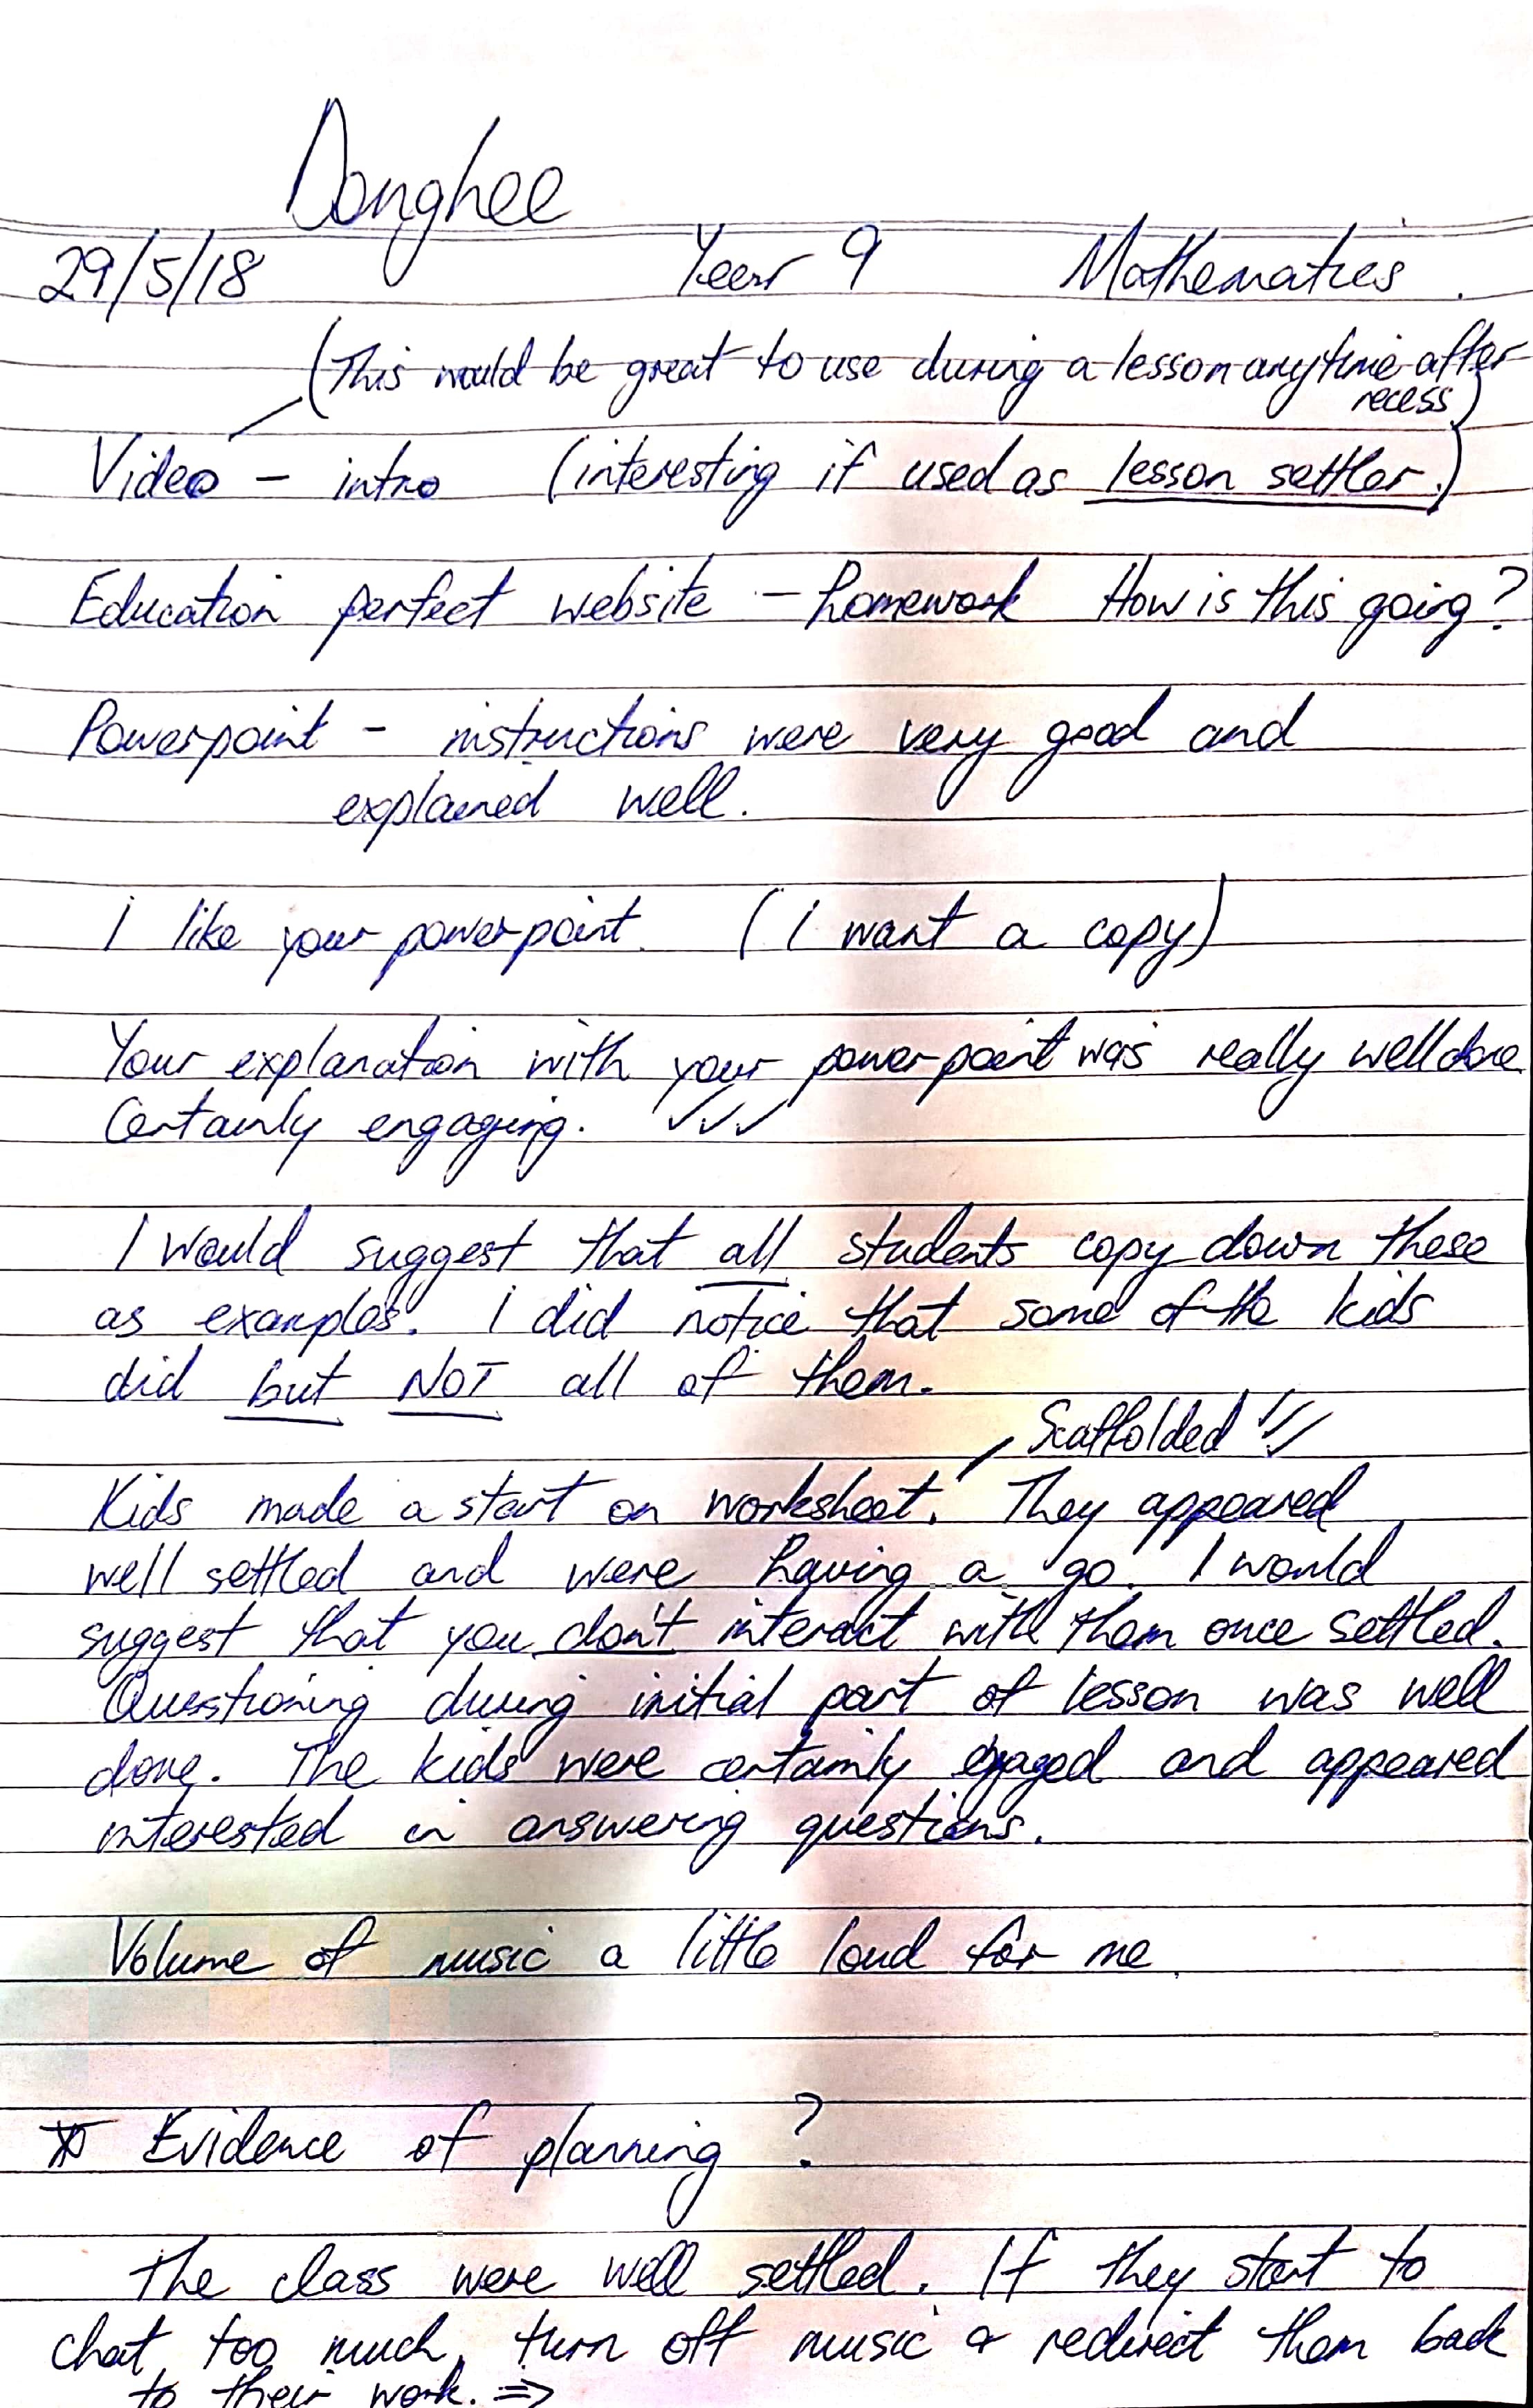 Donghee
29/5/18 Year 9 Mathematics.
(This would be great to use during a lesson anytime after
recess)
Video - intro (interesting if used as lesson settler.)
Education perfect website - homework How is this going?
Powerpoint - instructions were very good and
explained well.
I like your powerpoint. (I want a copy)
Your explanation with your powerpoint was really well done.
Certainly engaging. ✓✓✓
I would suggest that all students copy down these
as examples. I did notice that some of the kids
did but NOT all of them.
Scaffolded ✓✓✓
Kids made a start on worksheet. They appeared
well settled and were having a go. I would
suggest that you don't interact with them once settled.
Questioning during initial part of lesson was well
done. The kids were certainly egaged and appeared
interested in answering questions.
Volume of music a little loud for me.
* Evidence of planning ?
The class were well settled. If they start to
chat too much, turn off music & redirect them back
to their work. ⇒